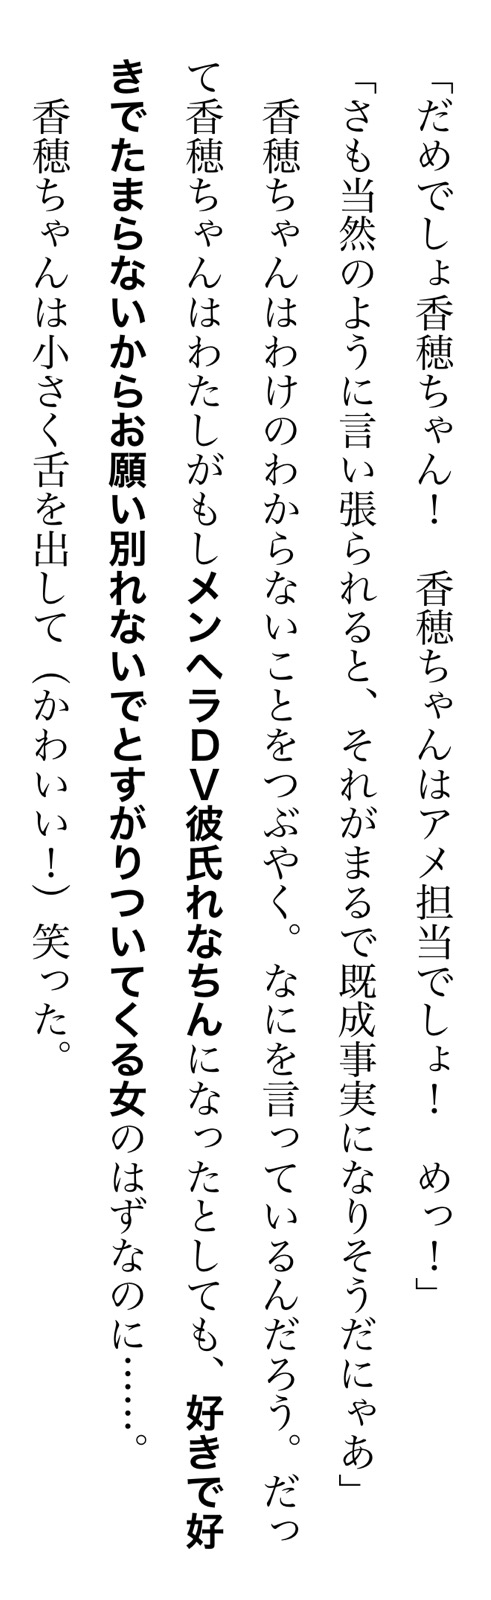 「だめでしょ香穂ちゃん！　香穂ちゃんはアメ担当でしょ！　めっ！」
「さも当然のように言い張られると、それがまるで既成事実になりそうだにゃあ」
　香穂ちゃんはわけのわからないことをつぶやく。なにを言っているんだろう。だっ
て香穂ちゃんはわたしがもしメンヘラＤＶ彼氏れなちんになったとしても、好きで好
きでたまらないからお願い別れないでとすがりついてくる女のはずなのに……。
　香穂ちゃんは小さく舌を出して（かわいい！）笑った。